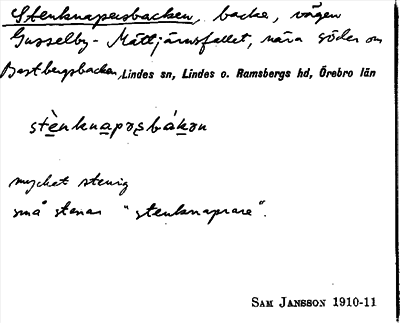 Stenknapersbacken, backe, vägen
Gusselby - Mältjärnsfallet, nära söder om
Bastbergsbacken, Lindes sn, Lindes o. Ramsbergs hd, Örebro län
stènknapəʂbákən
mycket stenig
små stenar "stenknaprare".
SAM JANSSON 1910-11